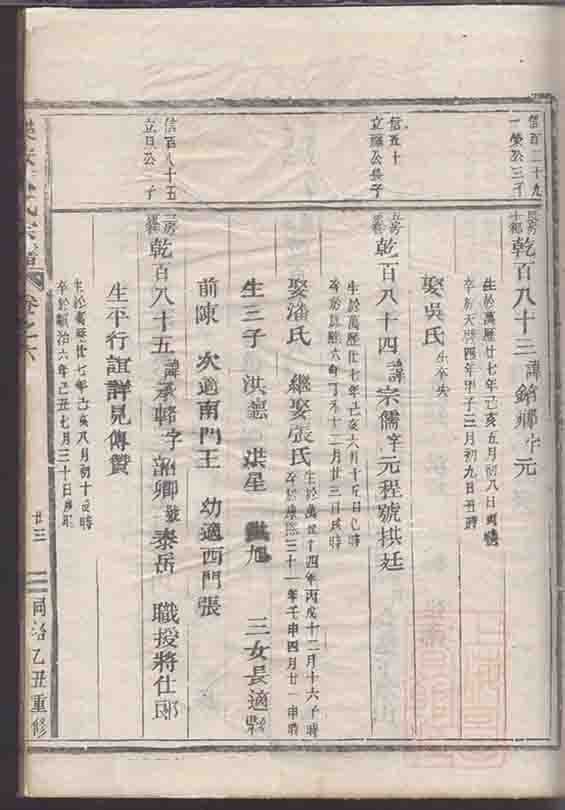 信百二十九
一榮公三子
乾百八十三 諱銘 字元
生於萬歷廿七年己亥五月初八日
卒於天啟四年甲子三月初九日丑時
娶吳氏 生卒失
信五十
立 公長子
乾百八十四 諱宗儒字元程號拱廷
生於萬歷廿七年己亥六月十五日巳時
卒於 六年丁未十二月廿三日戌時
娶潘氏 繼娶張氏
生於萬歷十四年丙戌十二月十六子時
卒於康熙三十一年壬申四月廿一申時
生三子 洪 洪星 旭 三女長適縣
前陳 次適南門王 幼適西門張
信百八十五
立 公 子
乾百八十五 諱承 字韶卿號泰岳 職授將仕郎
生平行誼詳見傳贊
生於萬歷廿七年己亥八月初十 時
卒於順治六年己丑七月三十日 時
氏宗譜 卷之六
廿三
同治乙丑重修